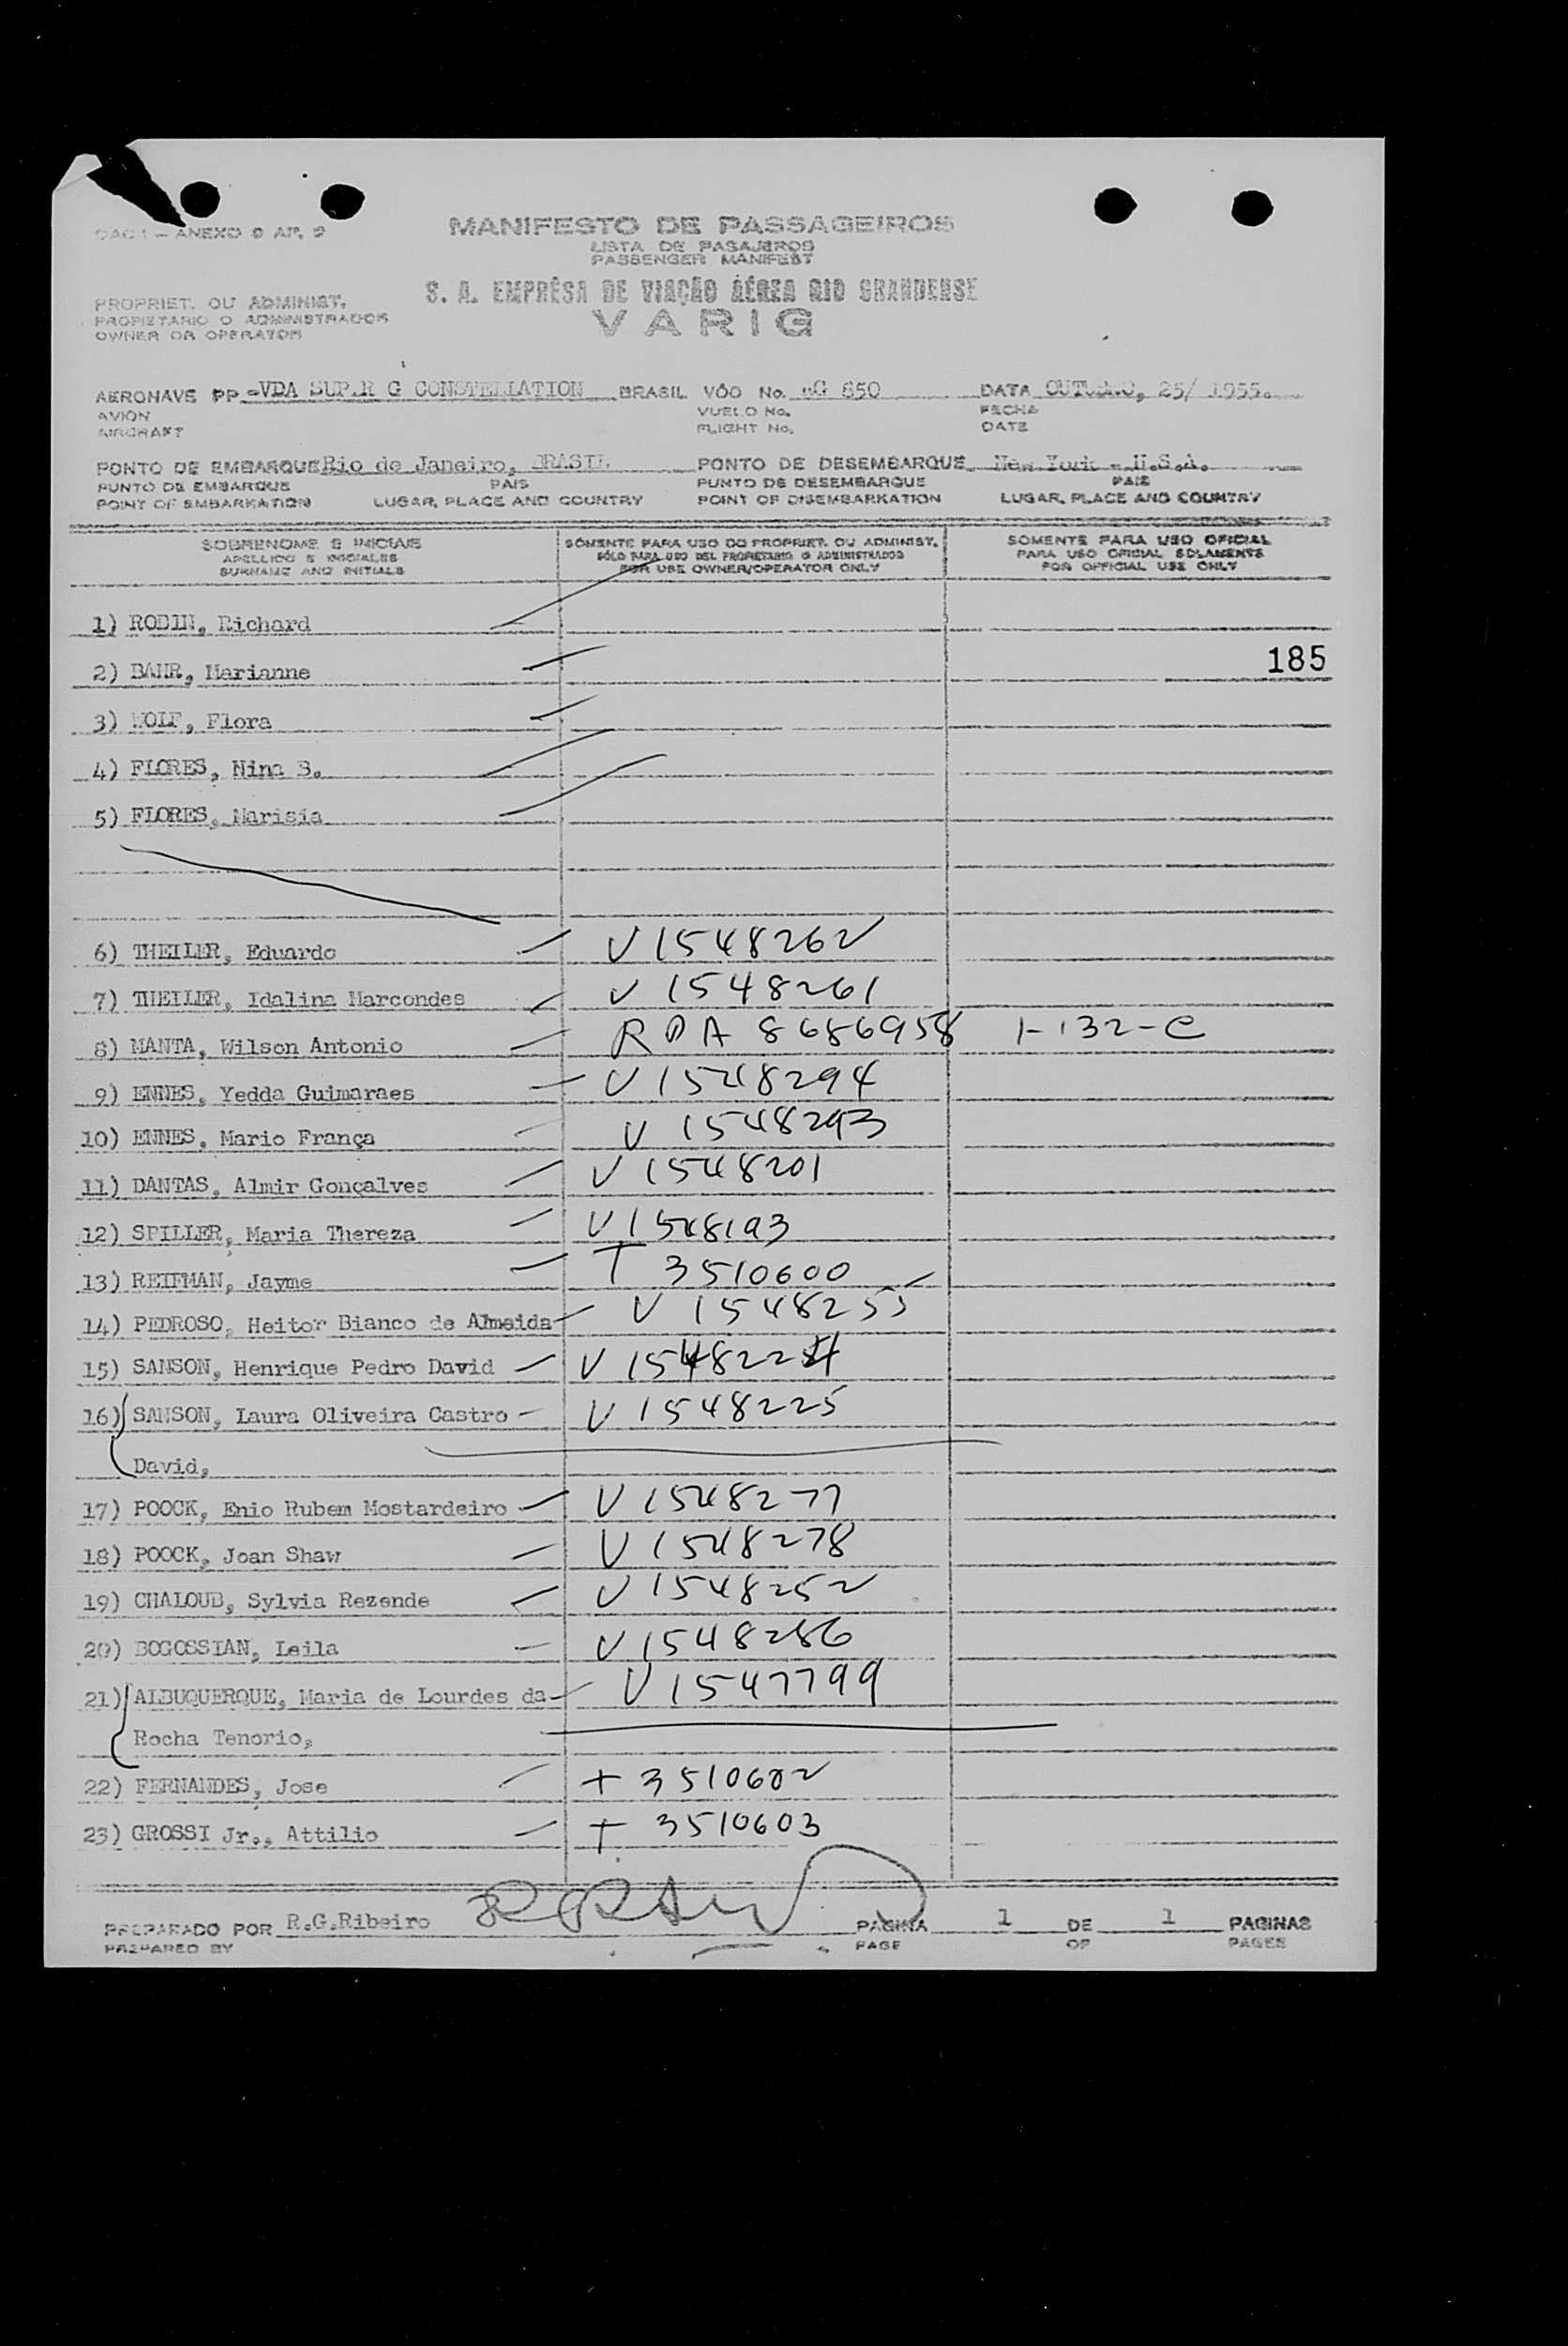 OAC 1 – ANEXO 9 AP. 2
MANIFESTO DE PASSAGEIROS
LISTA DE PASAJEROS
PASSENGER MANIFEST
S. A. EMPRÊSA DE VIAÇÃO AÉREA RIO GRANDENSE
VARIG
PROPRIET. OU ADMINIST.
PROPIETARIO O ADMINISTRADOR
OWNER OR OPERATOR
AERONAVE PP -VDA SUPER G CONSTELLATION BRASIL VÔO No. RG 850 DATA OUTUBRO, 25/ 1955.
AVION VUELO No. FECHA
AIRCRAFT FLIGHT No. DATE
PONTO DE EMBARQUE Rio de Janeiro, BRASIL PONTO DE DESEMBARQUE New York - U.S.A.
PUNTO DE EMBARQUE PAIS PUNTO DE DESEMBARQUE PAIS
POINT OF EMBARKATION LUGAR, PLACE AND COUNTRY POINT OF DISEMBARKATION LUGAR, PLACE AND COUNTRY
SOBRENOME E INICIAIS SÓMENTE PARA USO DO PROPRIET. OU ADMINIST. SOMENTE PARA USO OFICIAL
APELLIDO E INICIALES SÓLO PARA USO DEL PROPIETARIO O ADMINISTRADOR PARA USO OFICIAL SOLAMENTE
SURNAME AND INITIALS FOR USE OWNER/OPERATOR ONLY FOR OFFICIAL USE ONLY
1) ROBIN, Richard
185
2) BAHR, Marianne
3) WOLF, Flora
4) FLORES, Nina B.
5) FLORES, Marisia
6) THEILER, Eduardo V 1548262
7) THEILER, Idalina Marcondes V 1548261
8) MANTA, Wilson Antonio 8686958 1-132-C
9) ENNES, Yedda Guimaraes V 1548294
10) ENNES, Mario França V 1548293
11) DANTAS, Almir Gonçalves V 1548201
12) SPILLER, Maria Thereza V 1548193
13) REIFMAN, Jayme T 3510600
14) PEDROSO, Heitor Bianco de Almeida V 1548255
15) SANSON, Henrique Pedro David V 1548224
16) SANSON, Laura Oliveira Castro V 1548225
David,
17) POOCK, Enio Rubem Mostardeiro V 1548277
18) POOCK, Joan Shaw V 1548278
19) CHALOUB, Sylvia Rezende V 1548252
20) BOGOSSIAN, Leila V 1548286
21) ALBUQUERQUE, Maria de Lourdes da V 1547799
Rocha Tenorio,
22) FERNANDES, Jose T 3510602
23) GROSSI Jr., Attilio T 3510603
PREPARADO POR R.G.Ribeiro PAGINA 1 DE 1 PAGINAS
PREPARED BY PAGE OF PAGES